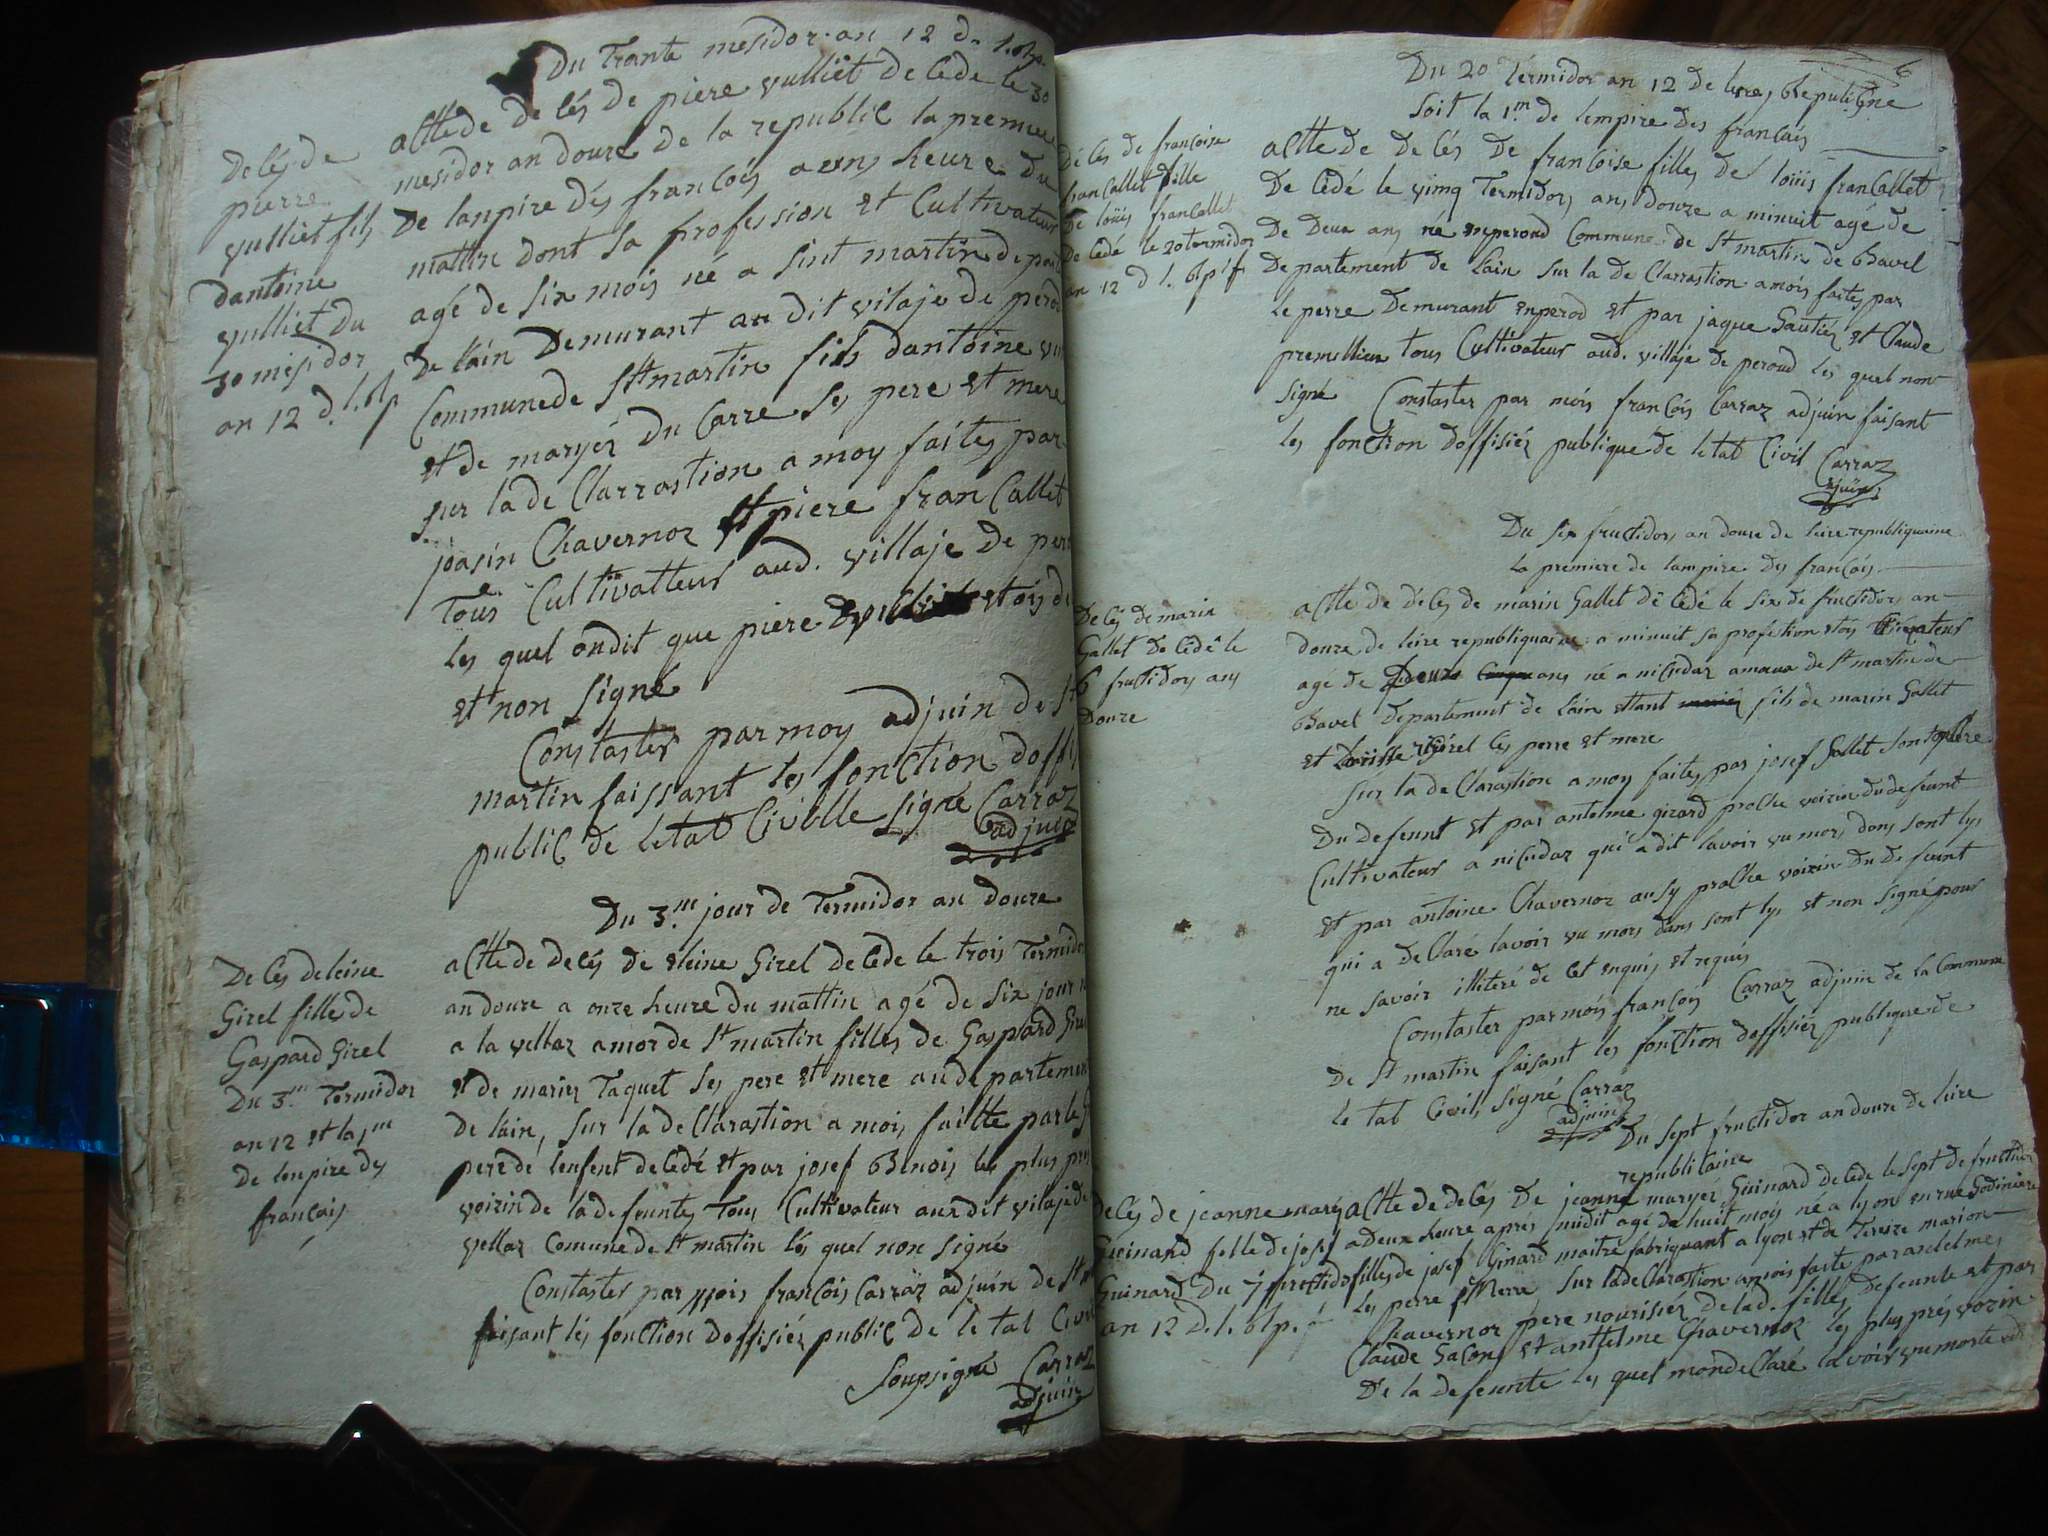 Du Trante mesidor an 12 d. l. Rp.
De léj de
pierre
vulliet fils
dantoine
vulliet du
30 mesidor
an 12 d. l. Rp
actte de de léj de piere vulliet de cede le 30
mesidor an douze de la republic la premiere
De lanpire dés francois a uns heure du
mattin dont sa profession et Cultivateur
agé de six mois né a sint martin depart
de lain Demurant au dit vilaje de perod
Commune de St martin fils dantoine
et de maryéz Du Carre ses pere et mere
sur la de Clarration a moy faites par
joasin Chavernoz et piere francallet
Tous Cultivatteur aud. villaje de pero
les quel ondit que piere
et non signé
Constaster par moy adjuin de St
martin faissant les fonction doffi
public de letat Civille signé Carraz
adjuin
Du 3.m jour de Termidor an douze
De léj deleine
Girel fille de
Gaspard Girel
Du 3.m Termidor
an 12 et la 1m
de lenpire des
francais
actte de deléj de eleine Girel de cede le trois Termidor
an douze a onze heure du mattin agé de six jour
a la vellaz amor de St martin filles de Gaspard Girel
et de mariez Taquet ses pere et mere au departement
de lain, sur la de Clarastion a mois faitte par le
pere dé lenfent de cedé et par josef Benois les plus pres
voizin de la de feuntes Tous Cultivateur au dit vilaje de
vellaz Comune de St martin lés quel non signé
Constaster par mois francois Carraz adjuin de St
faisant lés fonction doffisiéz public de le tat Civil
Soupsigné Carraz
adjuin
6
Du 20 Termidor an 12 de lere Republique
Soit la 1.m de lempire des francais
De léj de francoise
francallet fille
De loüis francallet
De cedé le 20 termidor
an 12 d. l. Rp f
actte de De léj De francoise filles de loüis francallet
De cedé le vimg Termidor, ans Douze a minuit agé de
De Deux ans né enperoud Commune de St martin de Bavel
Departement de Lain sur la de Clarrastion a mois faites par
le perre Demurant enperod et par jaque Gautiéz et Claude
premellieu tous Cultivateur aud. villaje de peroud les quel non
signé Constaster par mois francois Carraz adjuin faisant
les fonction doffisiéz publique de letat Civil Carraz
adjuin
Du six fructidor, an douze de leire republiquaine
la premiere de lampire des francois
De léj de marin
Gallet De cedé le
6 fructidor ans
Douze
actte de déléj de marin Gallet de cedé le six de fructidor, an
douze de leire republiquaine a minuit sa profestion etois Cultivateur
agé de Deux ans né a nicudaz amaux de St martin de
Bavel departement de Lain ettant fils de marin Gallet
et Louisse Girel les perre et mere
Sur la de Clarastion a moy faites, par josef Gallet son
Du defeunt et par antelme girard proche voizin du defeunt
Cultivateur a nicudaz qui a dit lavoir vu mors dans sont lys
et par antoine Chavernoz ausy proche voizin Du De feunt
qui a de Claré lavoir vu mors dans sont lys et non signé pour
ne savoir illiteré de cet enquis et requis
Constaster par mois francois Carraz adjuin de la Commune
De St martin faisant les fonction doffisiéz publique de
le tat Civil, signé Carraz
adjuin
Du sept fructidor an douze de lere
republicaine
De léj de jeanne maryéz
Guinard fille de josef
Guinard Du 7 fructidor
an 12 D. l. Rp.
actte de deléj De jeanne maryéz Guinard de cede le sept de fructidor
a deux heure aprés midit agé de huit mois né a lyon en rue Godiniere
filles de josef Ginard maitre fabriquant a lyon et de Tereze marion
les perre et merre sur la de Claration a mois faste par anselme
Chavernoz pere nourisiéz de lad. filles Defeunte et par
Claude Sacon et antelme Chavernoz les plus prés voizin
De la defeunte les quel mon de Claré lavoir vu morte